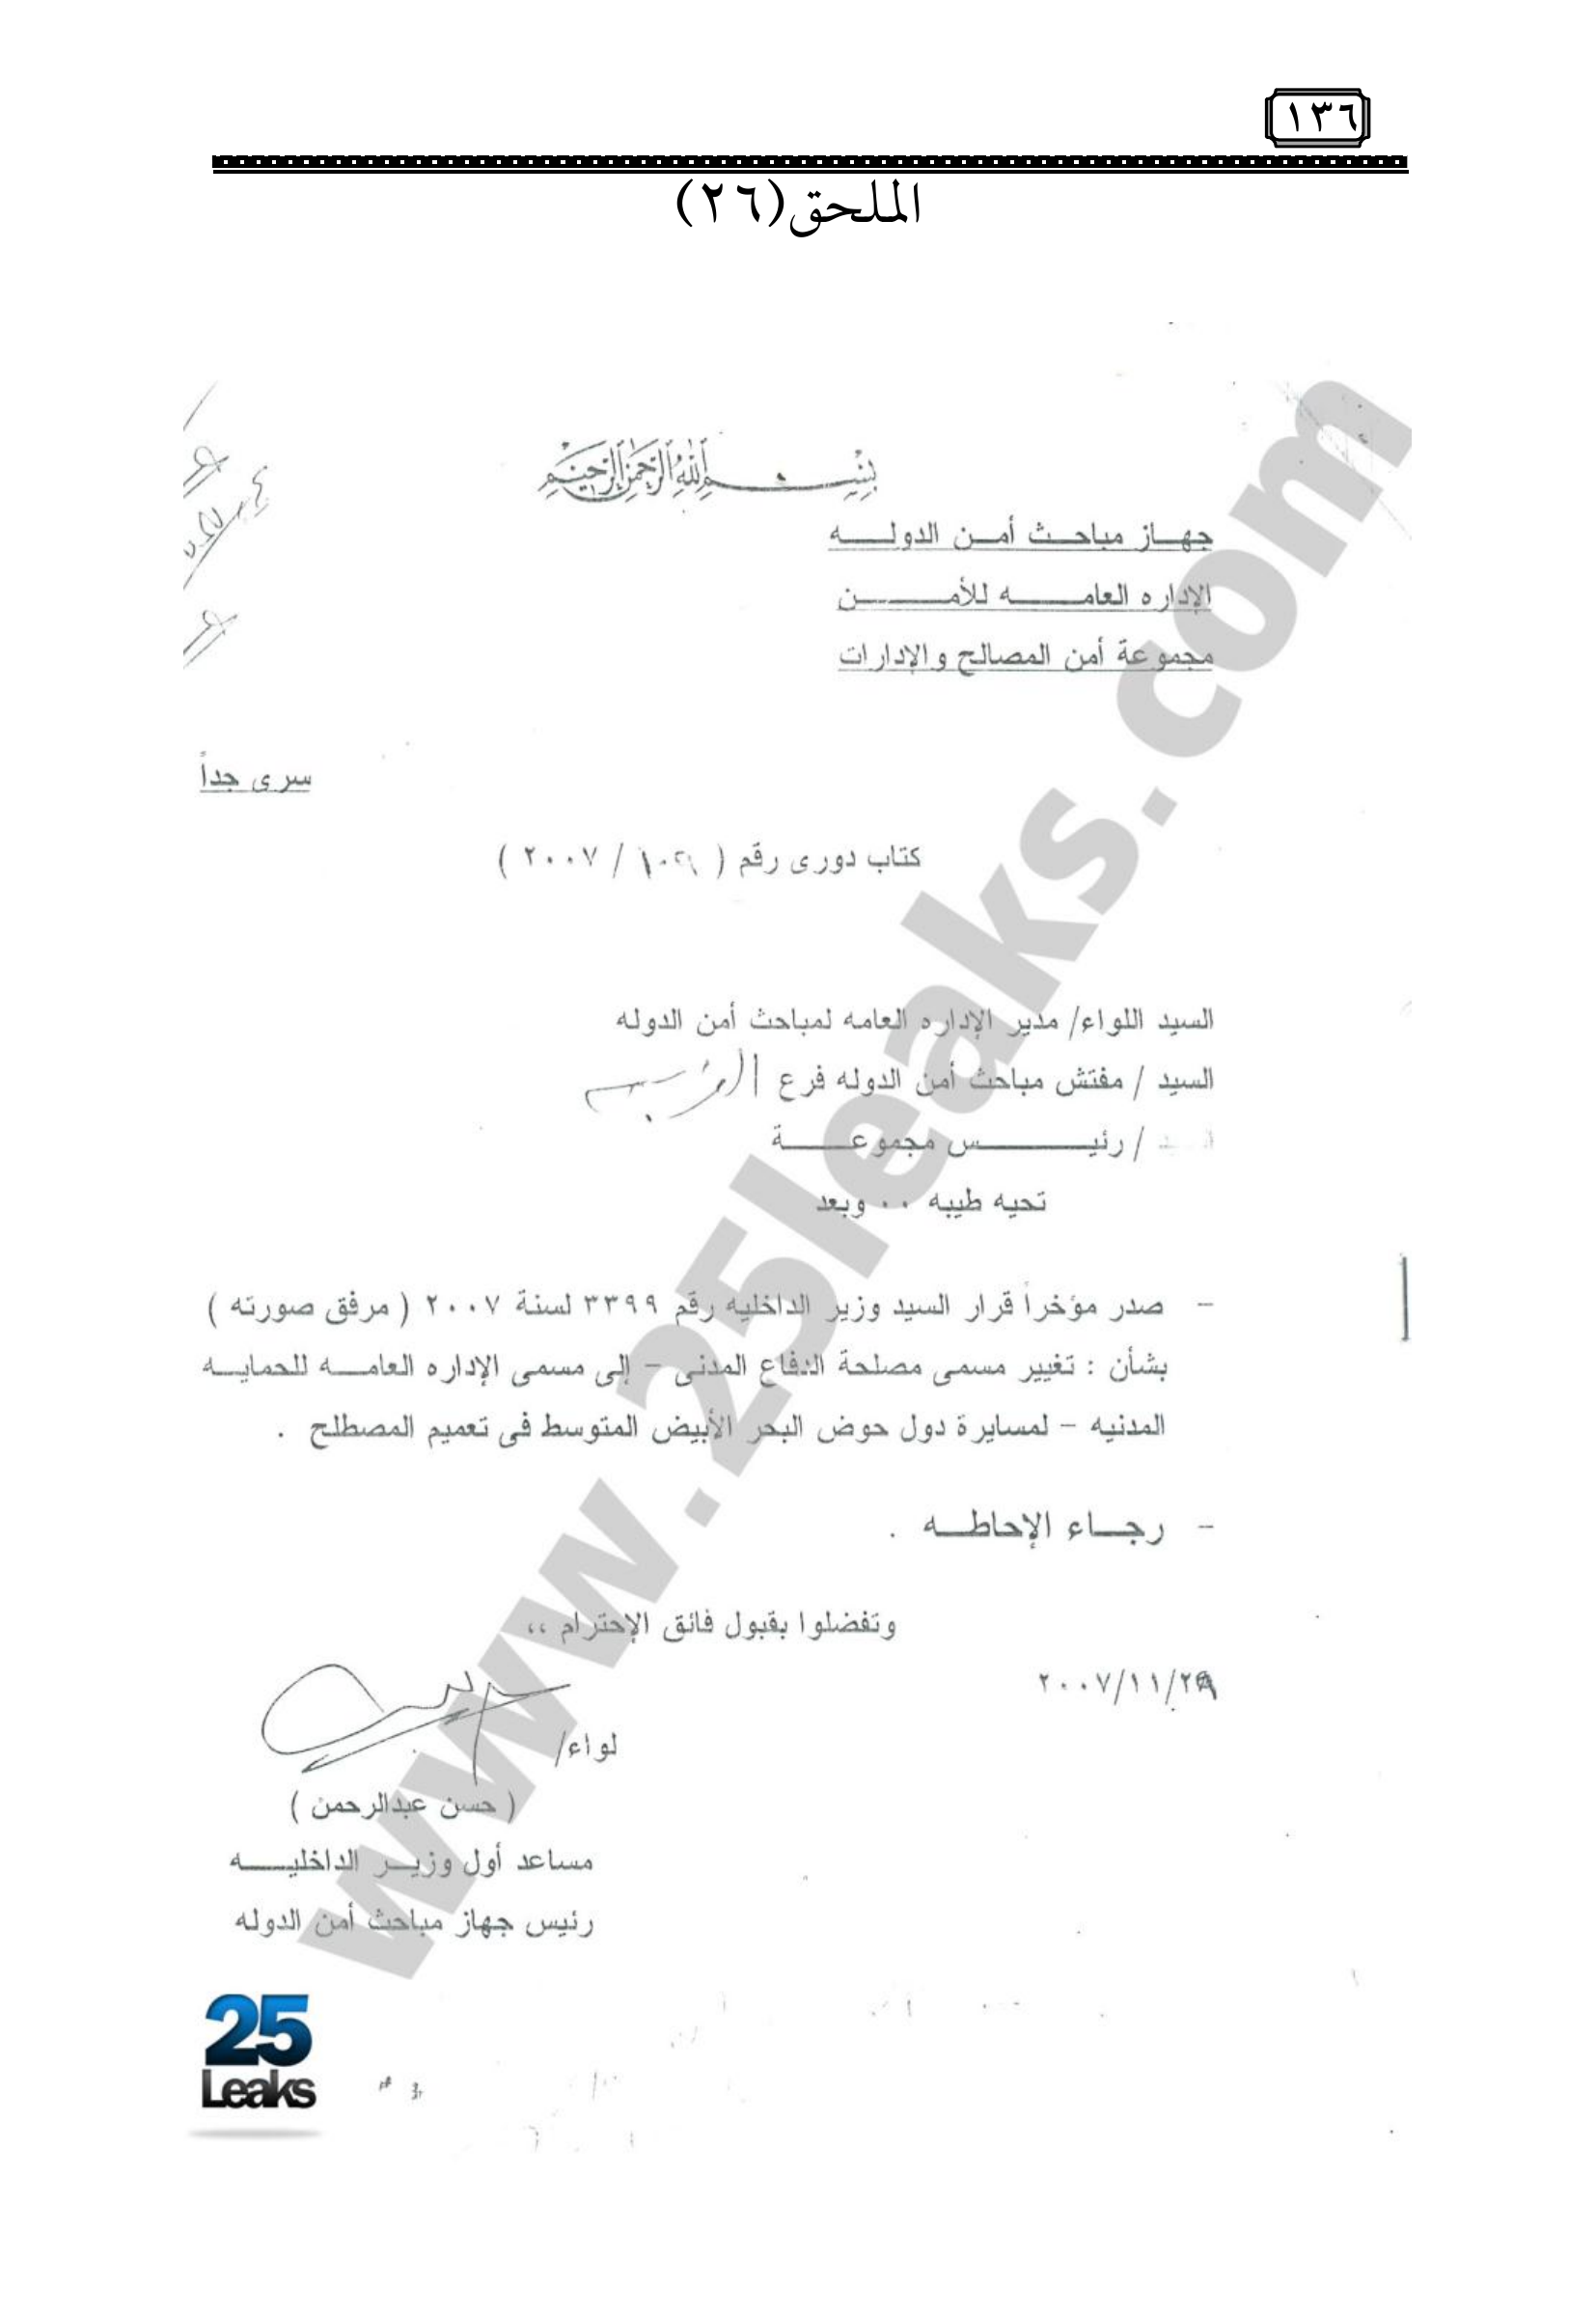 ١٣٦
الملحق(٢٦)
بسم الله الرحمن الرحيم
جهاز مباحث أمن الدوله
الإداره العامه للأمن
مجموعة أمن المصالح والإدارات
سرى جداً
كتاب دورى رقم ( / ٢٠٠٧ )
السيد اللواء/ مدير الإداره العامه لمباحث أمن الدوله
السيد / مفتش مباحث أمن الدوله فرع
السيد / رئيس مجموعة
تحيه طيبه ٠٠ وبعد
- صدر مؤخراً قرار السيد وزير الداخليه رقم ٣٣٩٩ لسنة ٢٠٠٧ ( مرفق صورته )
بشأن : تغيير مسمى مصلحة الدفاع المدنى - إلى مسمى الإداره العامه للحمايه
المدنيه - لمسايرة دول حوض البحر الأبيض المتوسط فى تعميم المصطلح .
- رجاء الإحاطه .
وتفضلوا بقبول فائق الإحترام ،،
٢٠٠٧/١١/٢٩
لواء/
( حسن عبدالرحمن )
مساعد أول وزير الداخليه
رئيس جهاز مباحث أمن الدوله
www.25leaks.com
25
Leaks